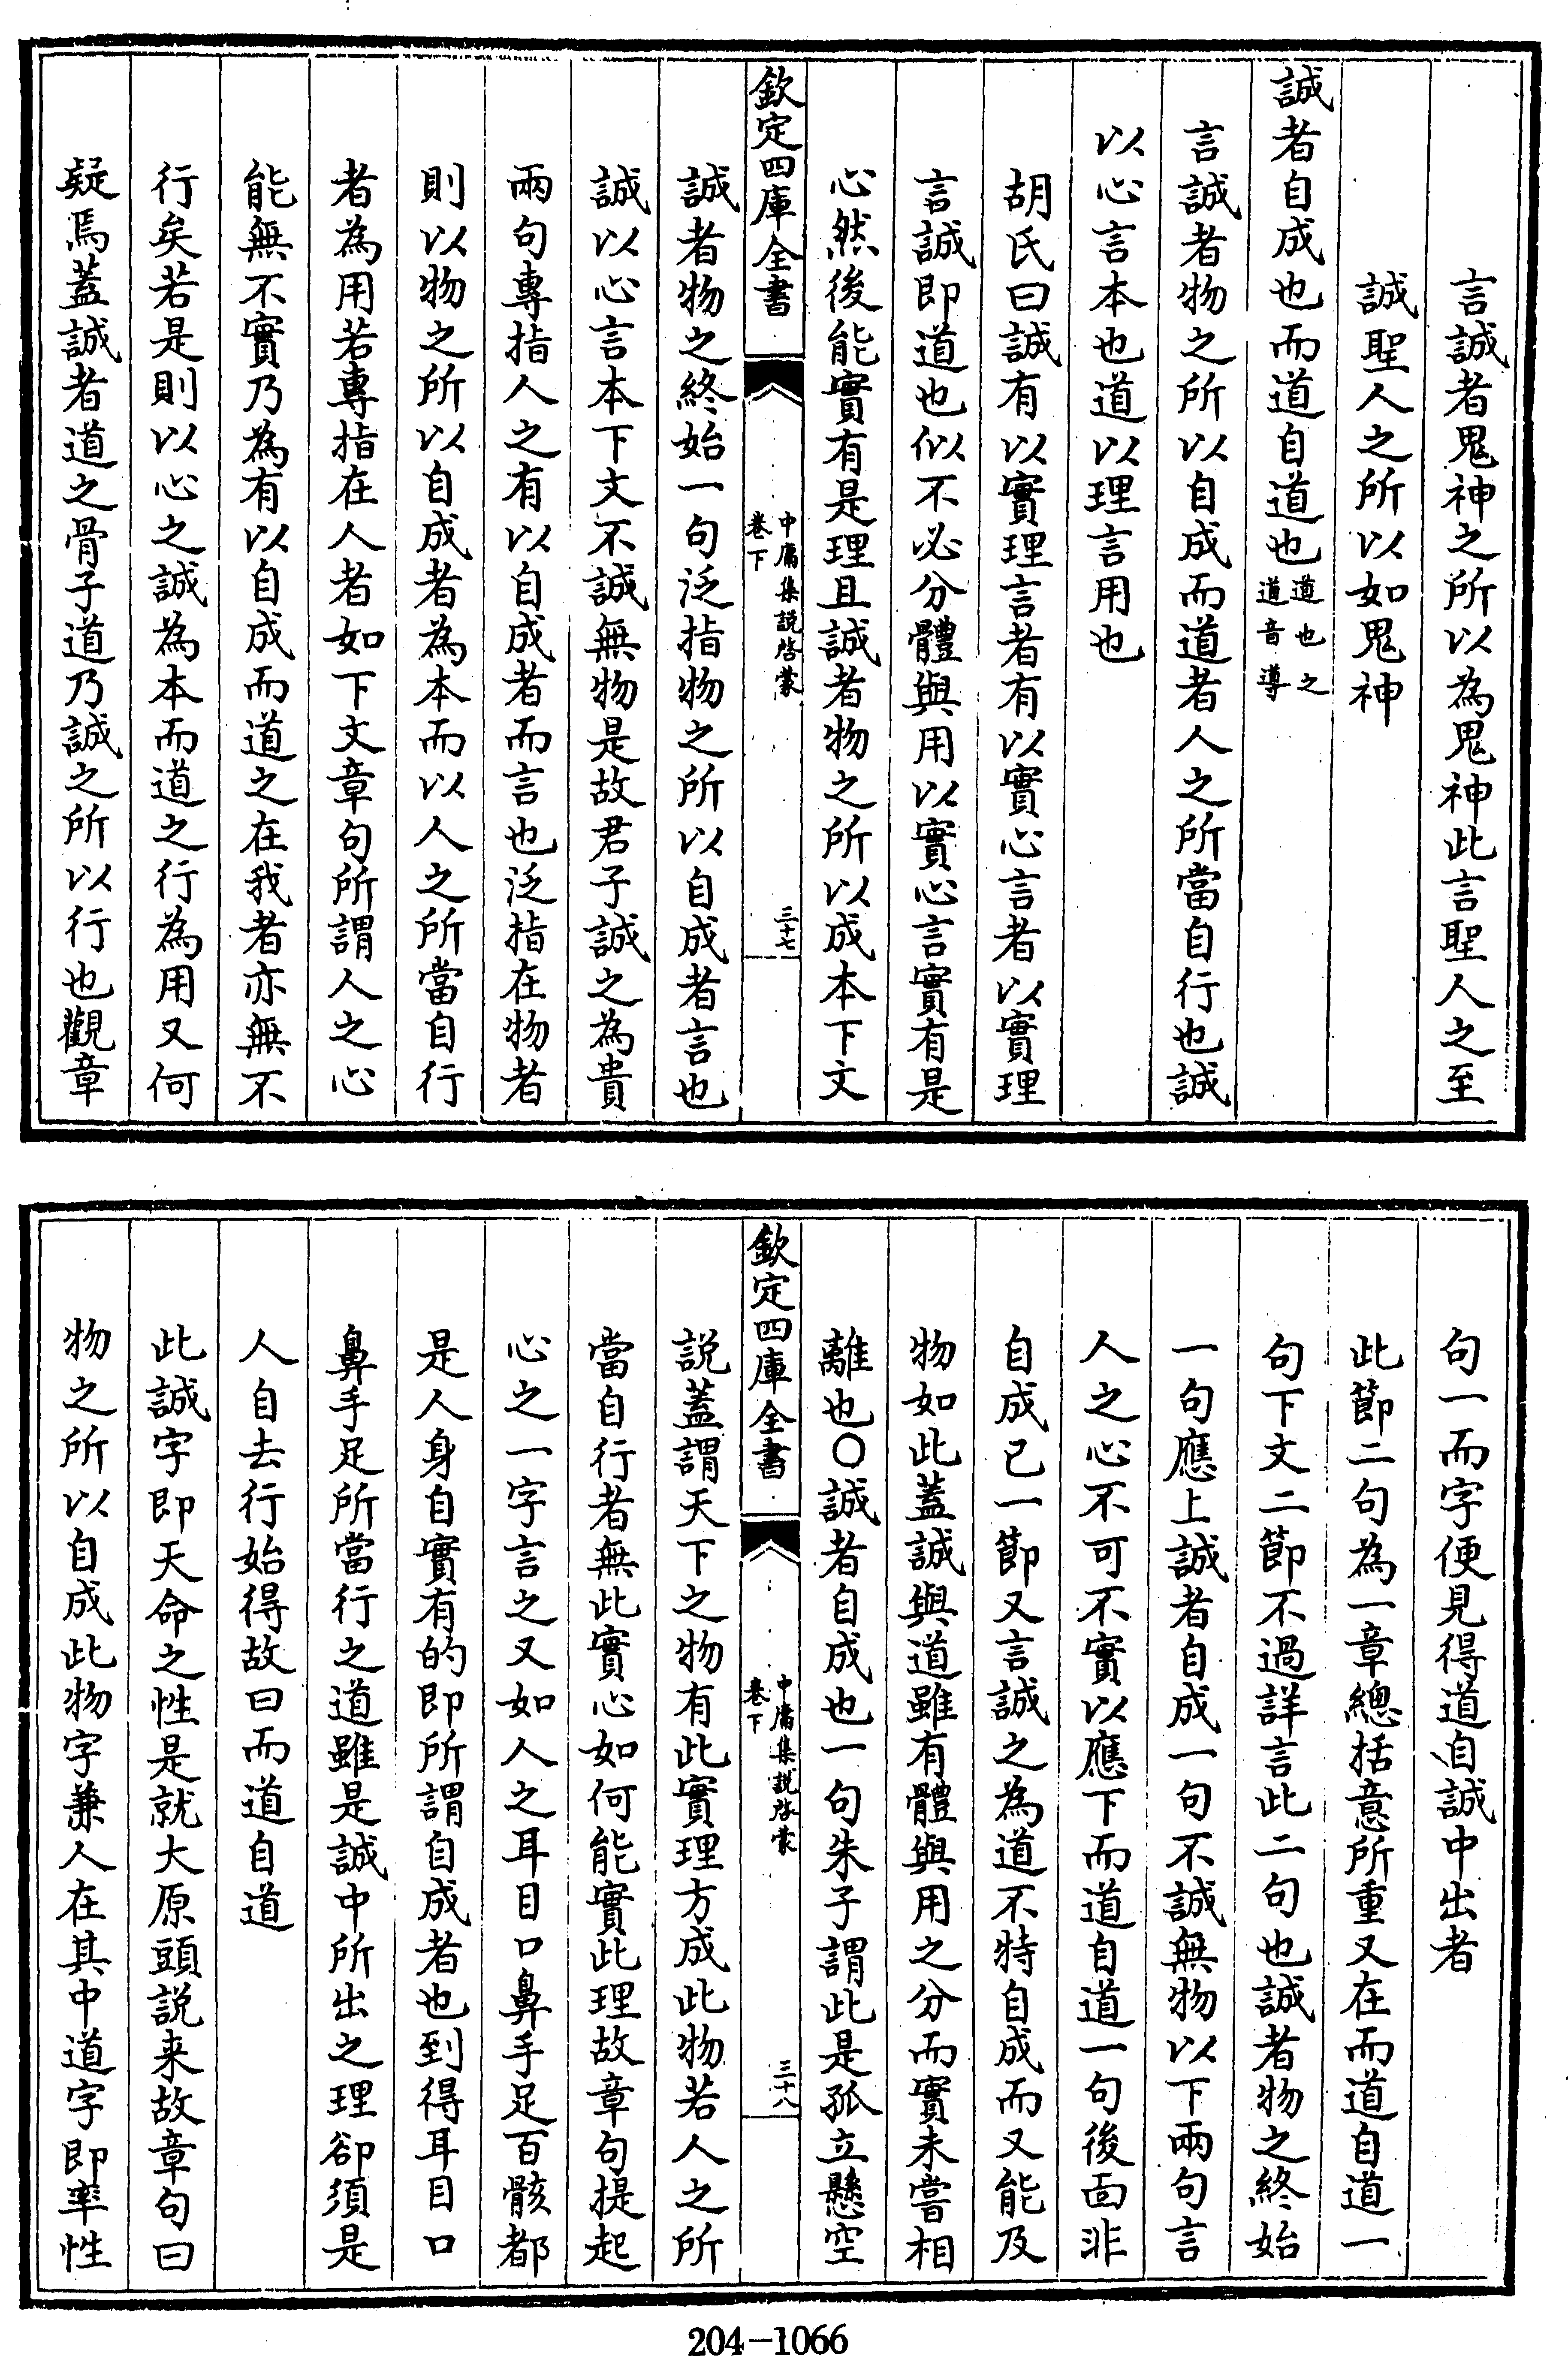 言誠者鬼神之所以為鬼神此言聖人之至
誠聖人之所以如鬼神
誠者自成也而道自道也道也之道音導
言誠者物之所以自成而道者人之所當自行也誠
以心言本也道以理言用也
胡氏曰誠有以實理言者有以實心言者以實理
言誠即道也似不必分體與用以實心言實有是
心然後能實有是理且誠者物之所以成本下文
欽定四庫全書
中庸集說啓蒙
卷下
三十七
誠者物之終始一句泛指物之所以自成者言也
誠以心言本下文不誠無物是故君子誠之為貴
兩句專指人之有以自成者而言也泛指在物者
則以物之所以自成者為本而以人之所當自行
者為用若專指在人者如下文章句所謂人之心
能無不實乃為有以自成而道之在我者亦無不
行矣若是則以心之誠為本而道之行為用又何
疑焉蓋誠者道之骨子道乃誠之所以行也觀章
句一而字便見得道自誠中出者
此節二句為一章總括意所重又在而道自道一
句下文二節不過詳言此二句也誠者物之終始
一句應上誠者自成一句不誠無物以下兩句言
人之心不可不實以應下而道自道一句後面非
自成已一節又言誠之為道不特自成而又能及
物如此蓋誠與道雖有體與用之分而實未嘗相
離也〇誠者自成也一句朱子謂此是孤立懸空
欽定四庫全書
中庸集說啓蒙
卷下
三十八
說蓋謂天下之物有此實理方成此物若人之所
當自行者無此實心如何能實此理故章句提起
心之一字言之又如人之耳目口鼻手足百骸都
是人身自實有的即所謂自成者也到得耳目口
鼻手足所當行之道雖是誠中所出之理卻須是
人自去行始得故曰而道自道
此誠字即天命之性是就大原頭說来故章句曰
物之所以自成此物字兼人在其中道字即率性
204-1066